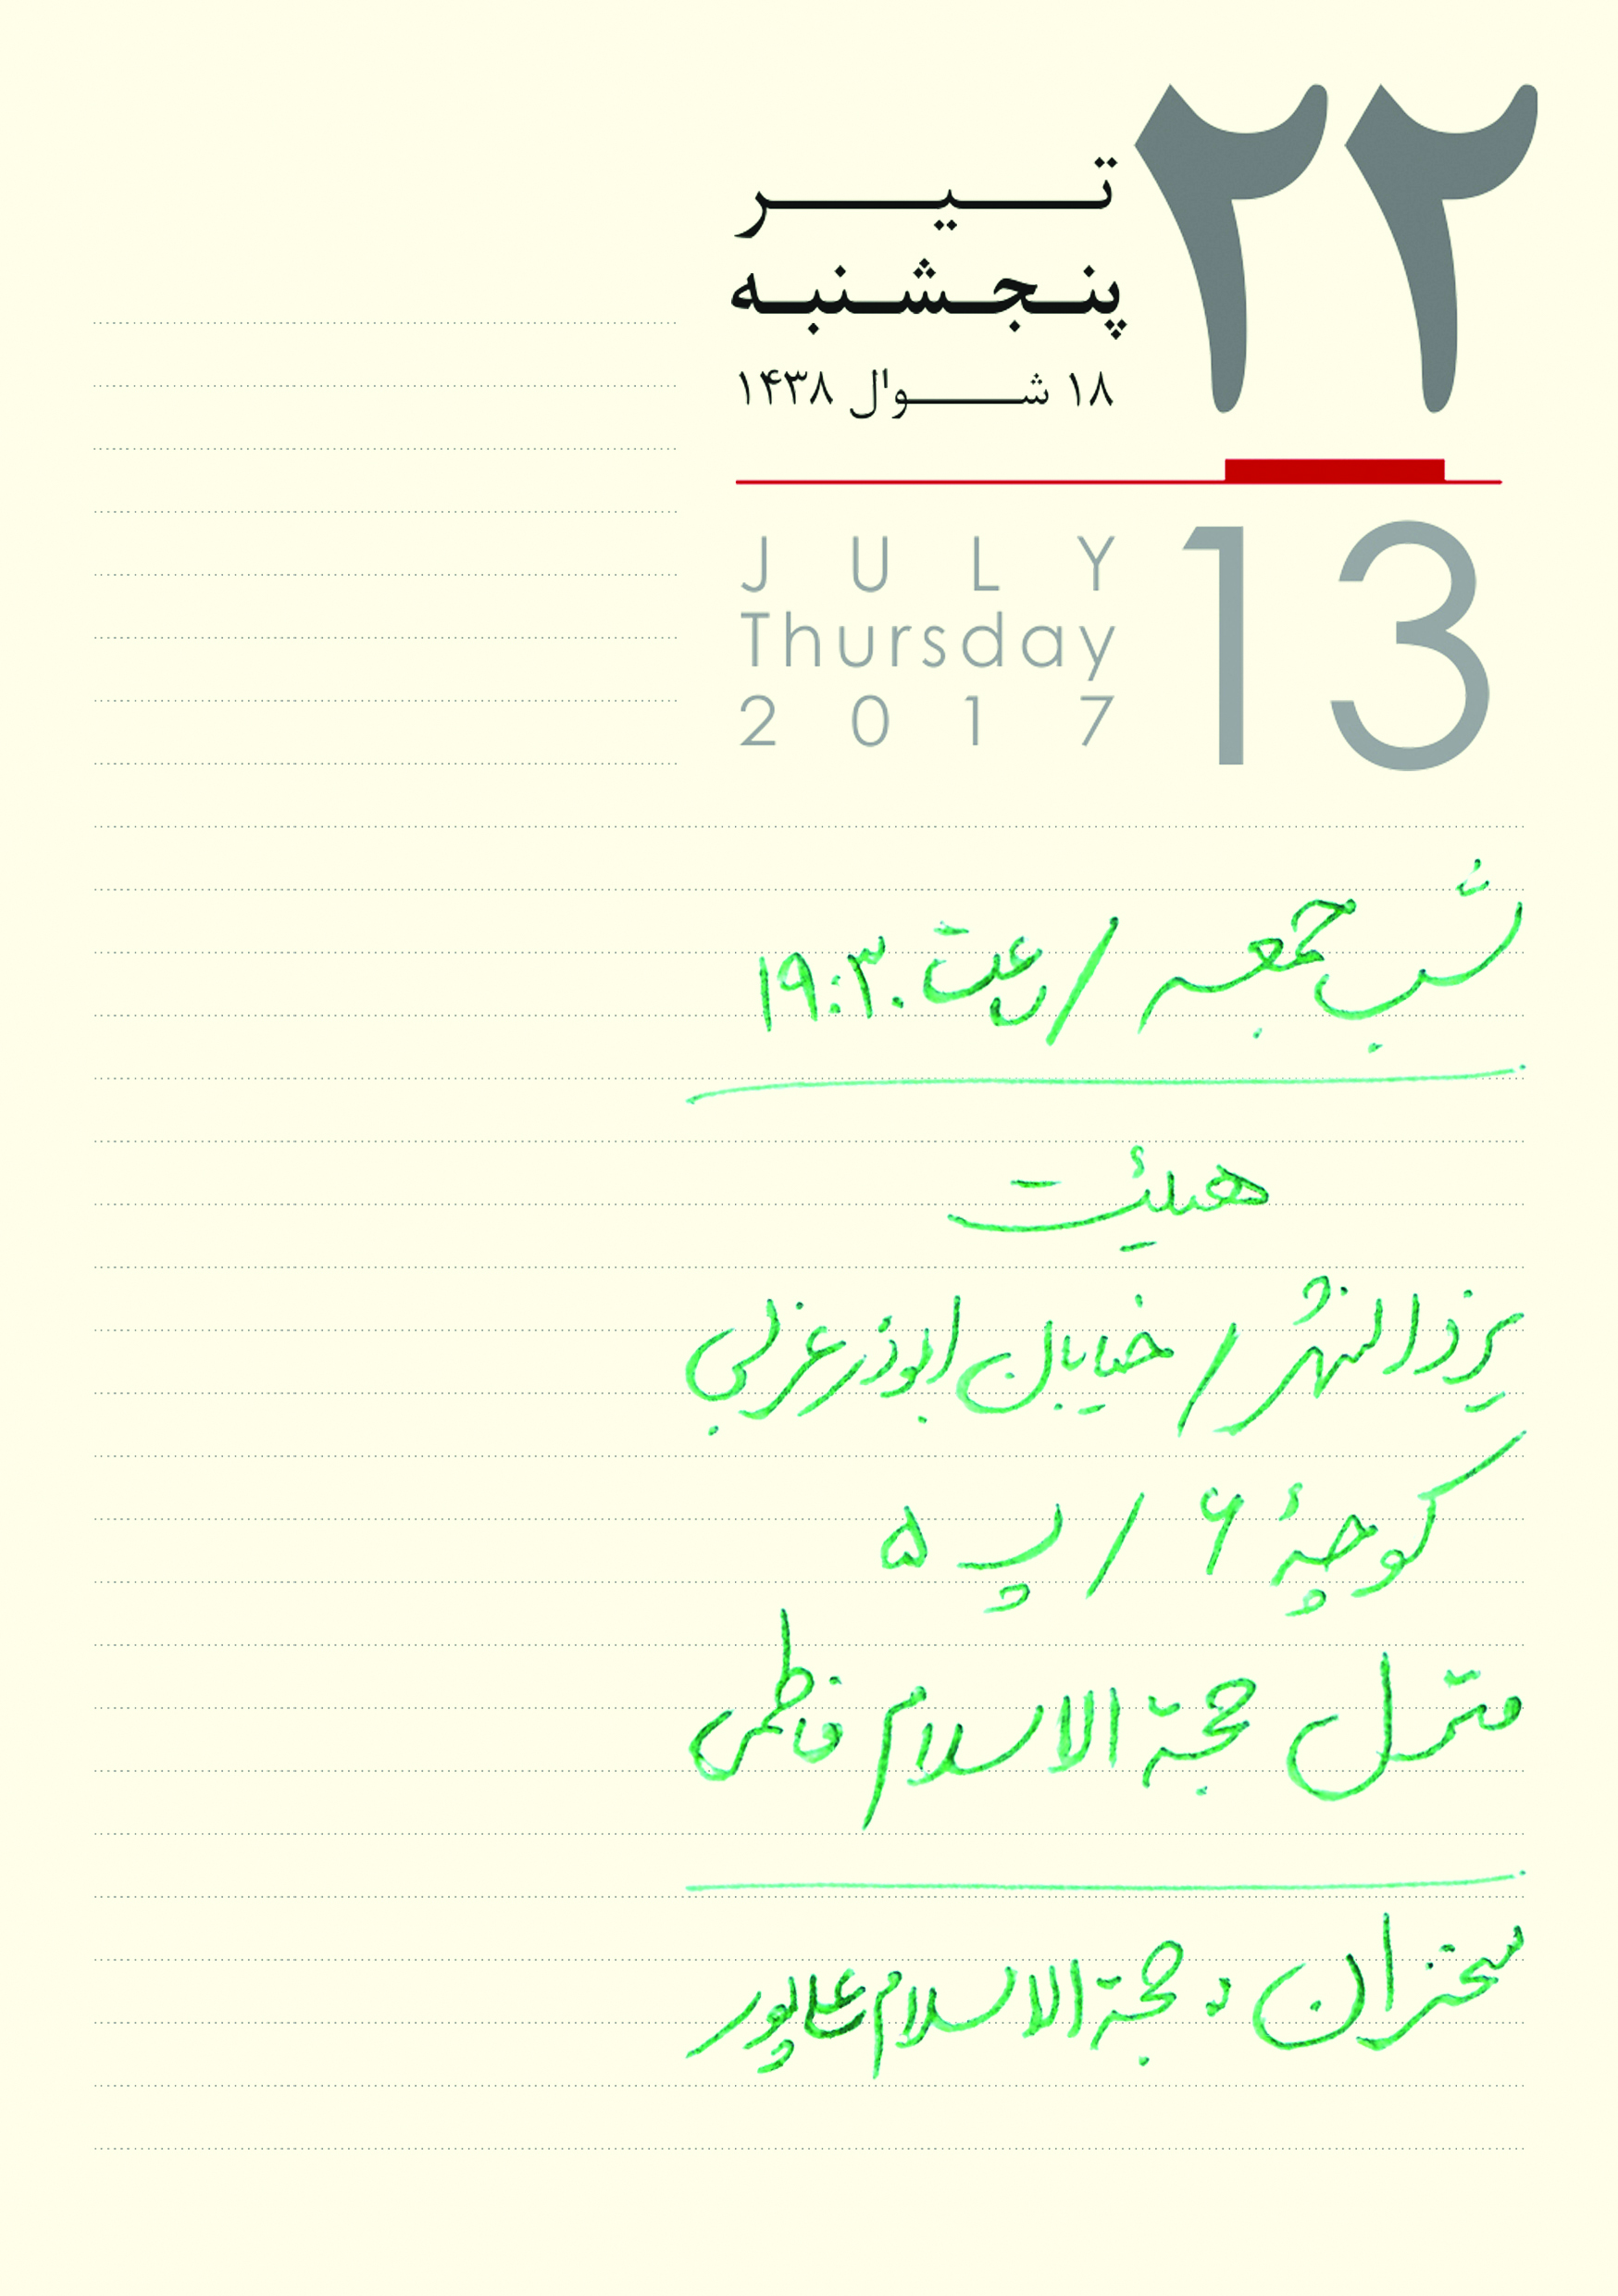 ۲۲
تیر
پنجشنبه
۱۸ شوال ۱۴۳۸
JULY
Thursday
2017
13
شب جمعه / ساعت ۱۹:۳۰
هیئت
یزدانشهر / خیابان ابوذر غربی
کوچهٔ ۶ / پ ۵
منزل حجة الاسلام فاطمی
سخنران : حجة الاسلام عالپور